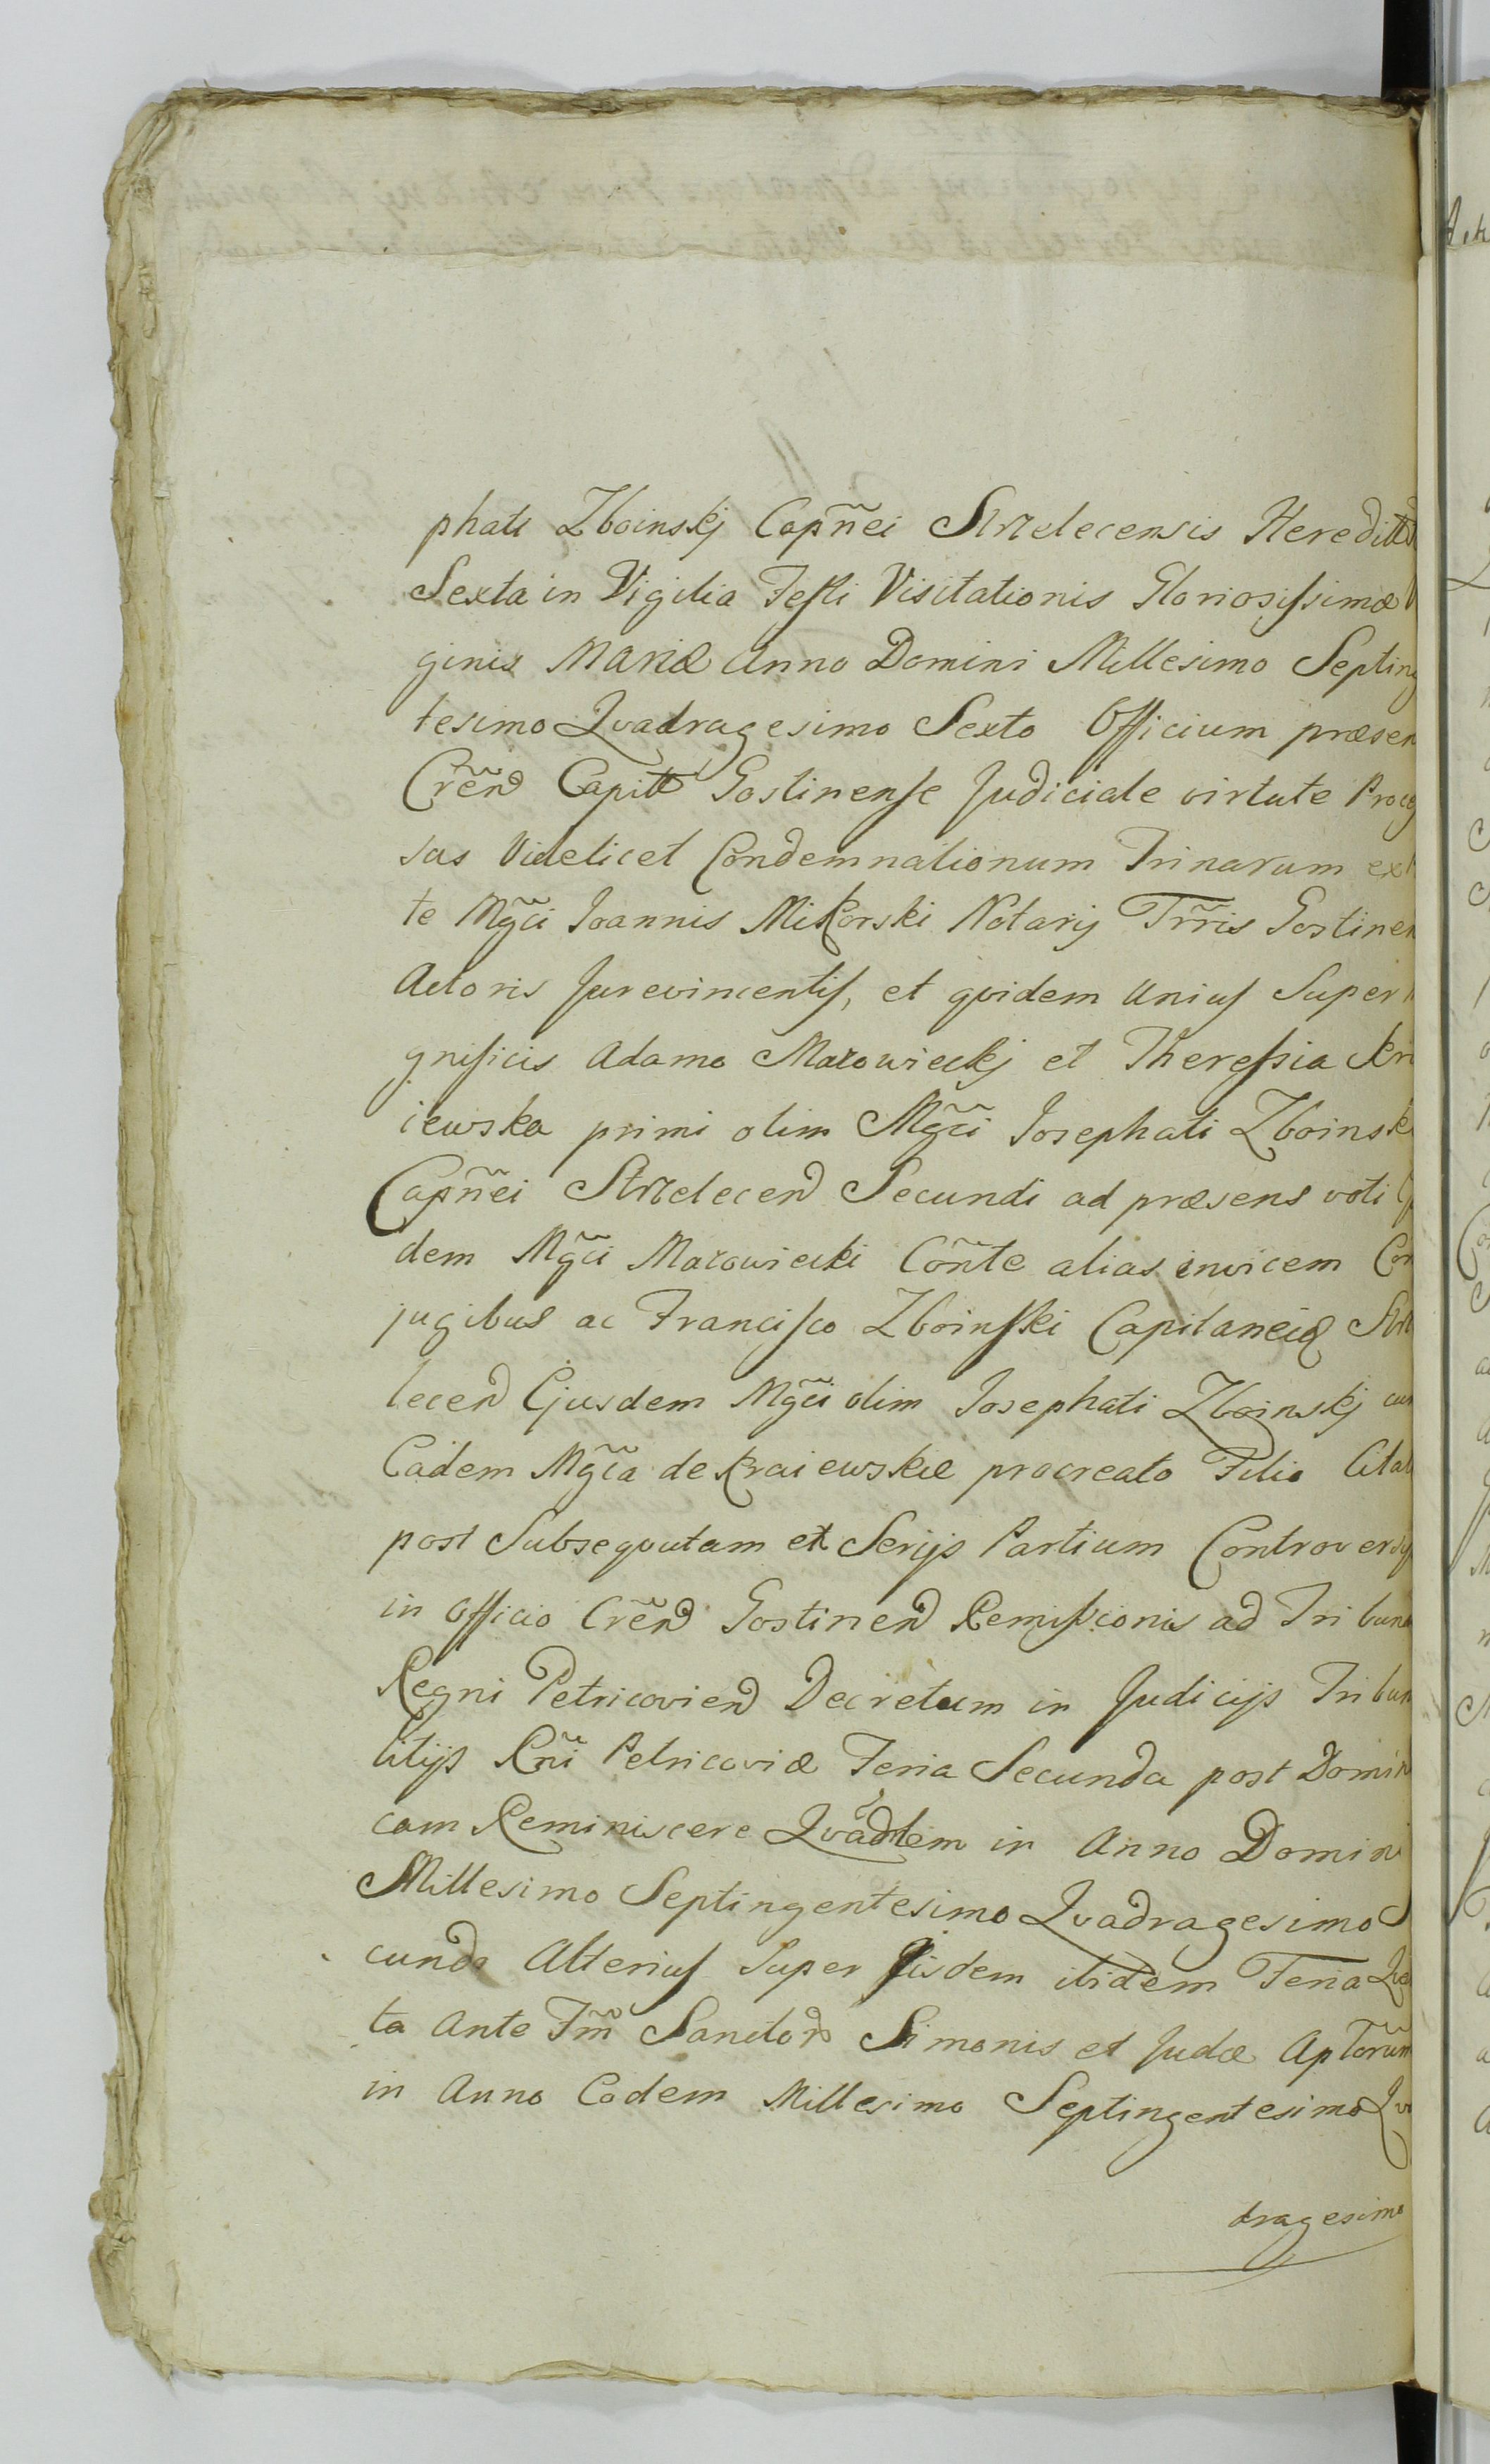 phati Zboinskj Capñei Strzelecensis Heredit
Sexta in Vigilia Festi Visitationis Gloriosissimæ
ginis Mariæ Anno Domini Millesimo Septing
tesimo Qvadragesimo Sexto Officium præsen
Crẽn Capitt Gostinense Judiciale virtute Proces
sus Videlicet Condemnationum Trinarum ex
te Mgc̃i Joannis Mikorski Notarij Trr̃is Gostinen
Actoris Jurevincentis, et qvidem Unius Super
gnificis Adamo Mazowieckj et Theressia Kra
iewska primi olim Mgc̃i Josephati Zboinsk
Capñei Strzelecen Secundi ad præsens voti
dem Mgc̃i Mazowiecki Coñte alias invicem Con
jugibus ac Francisco Zboinski Capitaneid Strze
lecen Ejusdem Mgc̃i olim Josephati Zboinskj cum
Eadem Mgc̃a de Kraiewskie procreato Filio Citat
post Subseqvutam ex Serijs Partium Controversijs
in Officio Crẽn Gostinen Remissionis ad Tribuna
Regni Petricovien Decretum in Judicijs Tribuna
litijs Rñi Petricoviæ Feria Secunda post Domini
cam Reminiscere Qvãdlem in Anno Domini
Millesimo Septingentesimo Qvadragesimo S
cundo Alterius Super Jisdem ibidem Feria Qva
ta Ante Fm̃ Sanctor Simonis et Judæ Aptorum
in Anno Eodem Millesimo Septingentesimo Qva
dragesimo